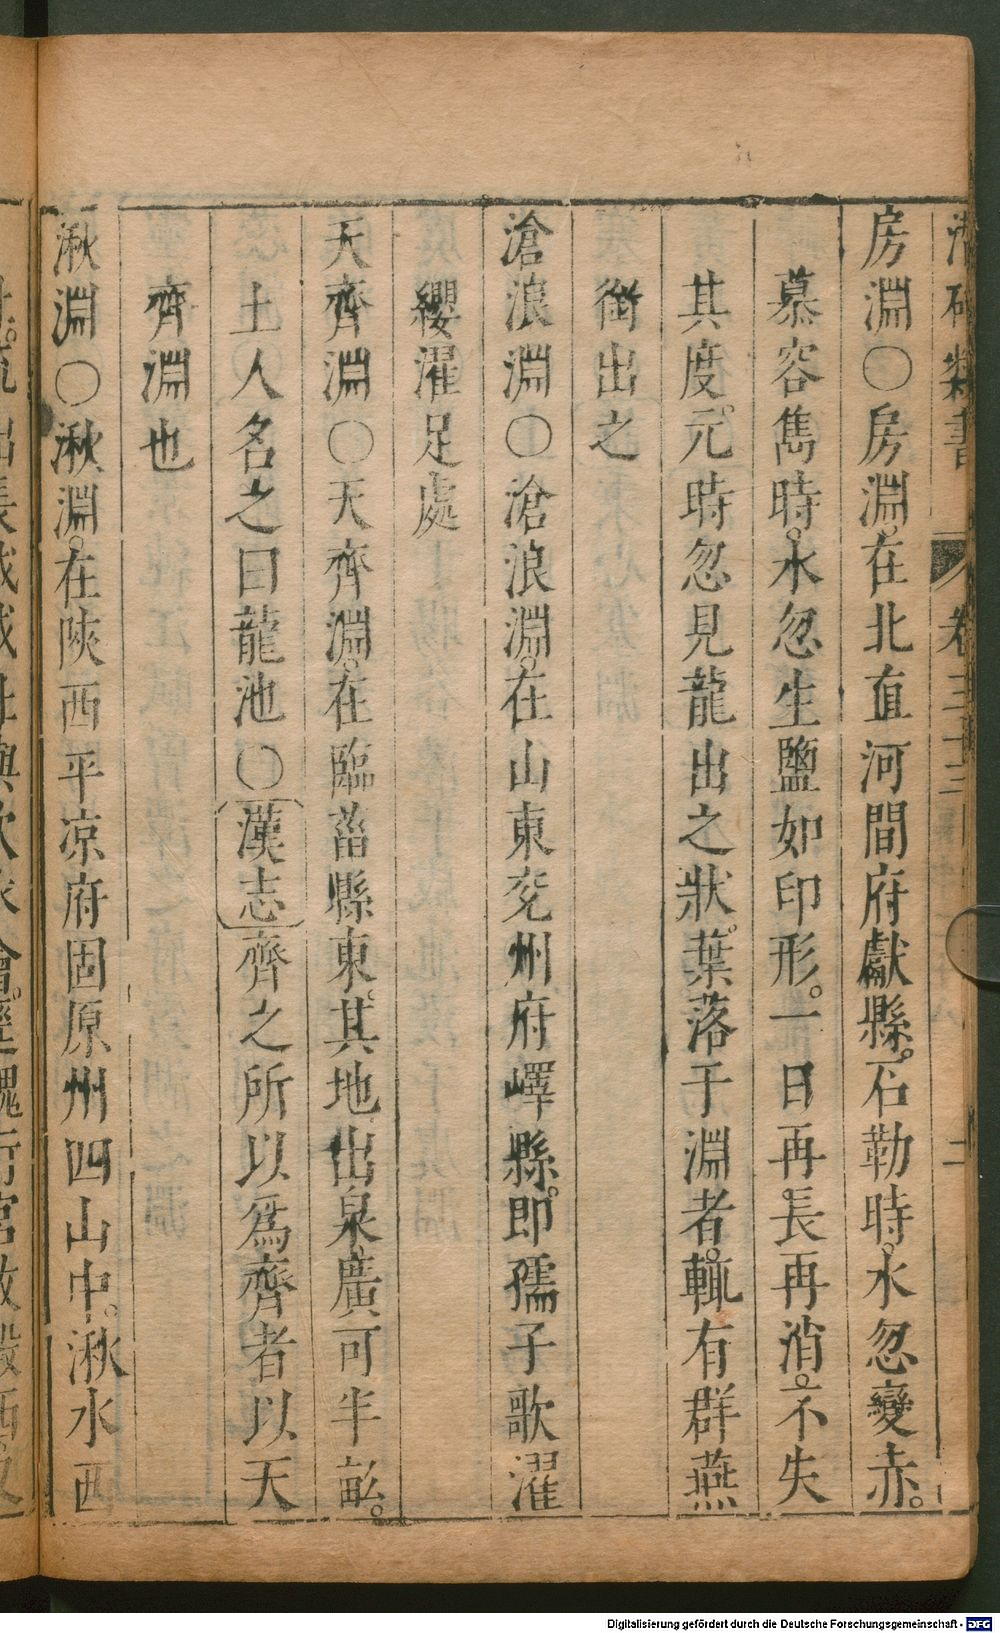 房淵〇房淵。在北直河間府獻縣。石勒時。水忽變赤。
慕容雋時。水忽生鹽如印形。一日再長再消。不失
其度。元時忽見龍出之狀。葉落于淵者。輒有群燕
銜出之
滄浪淵〇滄浪淵。在山東兗州府嶧縣。即孺子歌濯
纓濯足處
天齊淵〇天齊淵。在臨菑縣東。其地出泉。廣可半畝。
土人名之曰龍池〇漢志齊之所以爲齊者以天
齊淵也
湫淵〇湫淵。在陝西平凉府固原州四山中。湫水西
類書 卷三十三 二
Digitalisierung gefördert durch die Deutsche Forschungsgemeinschaft - DFG